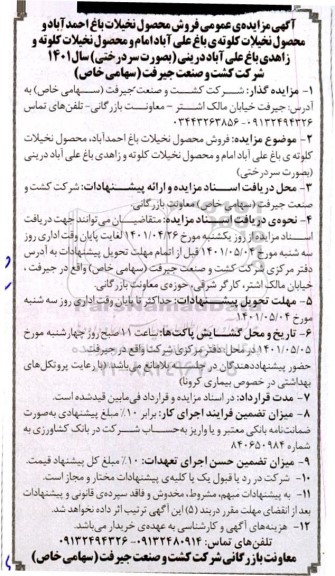 آگهی مزایده‌ی عمومی فروش محصول نخیلات باغ احمدآباد و
محصول نخیلات کلوته‌ی باغ علی آباد امام و محصول نخیلات کلوته و
زاهدی باغ علی آباد درینی (بصورت سردرختی) سال ۱۴۰۱
شرکت کشت و صنعت جیرفت (سهامی خاص)
۱- مزایده گذار: شرکت کشت و صنعت جیرفت (سهامی خاص) به
آدرس: جیرفت خیابان مالک اشتر - معاونت بازرگانی- تلفن‌های تماس
۰۹۱۳۲۴۹۴۳۲۶ - ۰۳۴۴۳۲۶۳۸۵۶
۲- موضوع مزایده: فروش محصول نخیلات باغ احمدآباد، محصول نخیلات
کلوته‌ی باغ علی آباد امام و محصول نخیلات کلوته و زاهدی باغ علی آباد درینی
(بصورت سردرختی)
۳- محل دریافت اسناد مزایده و ارائه پیشنهادات: شرکت کشت و
صنعت جیرفت (سهامی خاص) معاونت بازرگانی.
۴- نحوه‌ی دریافت اسناد مزایده: متقاضیان می‌توانند جهت دریافت
اسناد مزایده از روز یکشنبه مورخ ۱۴۰۱/۰۴/۲۶ لغایت پایان وقت اداری روز
سه شنبه مورخ ۱۴۰۱/۰۵/۰۴ قبل از اتمام مهلت تحویل پیشنهادات به آدرس
دفتر مرکزی شرکت کشت و صنعت جیرفت (سهامی خاص) واقع در جیرفت ،
خیابان مالک اشتر، کارگر شرقی، حوزه‌ی معاونت بازرگانی.
۵- مهلت تحویل پیشنهادات: حداکثر تا پایان وقت اداری روز سه شنبه
مورخ ۱۴۰۱/۰۵/۰۴.
۶- تاریخ و محل گشایش پاکت‌ها: ساعت ۱۱ صبح روز چهارشنبه مورخ
۱۴۰۱/۰۵/۰۵ در محل دفتر مرکزی شرکت واقع در جیرفت.
حضور پیشنهاددهندگان در جلسه بلامانع می‌باشد. (با رعایت پروتکل‌های
بهداشتی در خصوص بیماری کرونا)
۷- مدت قرارداد: در اسناد مزایده و قرارداد فی‌مابین قید شده است.
۸- میزان تضمین فرایند اجرای کار: برابر ۱۰٪ مبلغ پیشنهادی به‌صورت
ضمانت‌نامه بانکی معتبر و یا واریز به حساب شرکت در بانک کشاورزی به
شماره ۸۴۰۶۵۰۹۸۴
۹- میزان تضمین حسن اجرای تعهدات: ۱۰٪ مبلغ کل پیشنهاد قیمت.
۱۰- شرکت در رد یا قبول یک یا کلیه‌ی پیشنهادات مختار و مجاز است.
۱۱- به پیشنهادات مبهم، مشروط، مخدوش و فاقد سپرده‌ی قانونی و پیشنهادات
بعد از انقضای مهلت مقرر در بند (۵) این آگهی ترتیب اثر داده نخواهد شد.
۱۲- هزینه‌های آگهی و کارشناسی به عهده‌ی خریدار می‌باشد.
تلفن‌های تماس: ۰۹۱۳۲۴۸۰۹۱۴-۰۹۱۳۲۴۹۴۳۲۶
معاونت بازرگانی شرکت کشت و صنعت جیرفت (سهامی خاص)